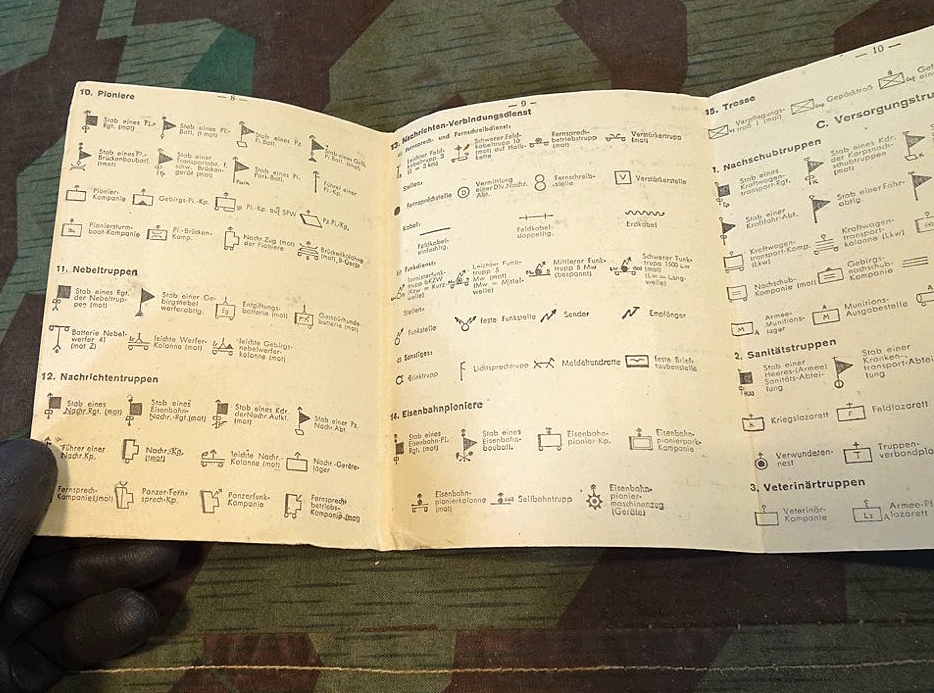 — 8 —
10. Pioniere
Stab eines Pi.-
Rgt. (mot)
Stab eines Pi.-
Batl. (mot)
Stab eines Pz.
Pi. Batl.
Stab eines Pi.-
Brückenbaubatl.
(mot)
Stab eines Pi.
Park-Batl.
Führer einer
Pi.-Kp.
Pionier-
Kompanie
Gebirgs-Pi.-Kp.
Pi.-Kp. auf SPW
Pz. Pi.-Kp.
Pioniersturm-
boot-Kompanie
Pi.-Brücken-
Komp.
Nachr. Zug (mot)
der Pioniere
Brückenkolonne
(mot), B-Gerät
11. Nebeltruppen
Stab eines Rgt.
der Nebeltrup-
pen (mot)
Stab einer Ge-
birgsnebel
werferabtlg.
Entgiftungs-
batterie (mot)
Gasspürhunde-
batterie (mot)
Batterie Nebel-
werfer 41
(mot Z)
leichte Werfer-
Kolonne (mot)
leichte Gebirgs-
nebelwerfer-
kolonne (mot)
12. Nachrichtentruppen
Stab eines
Nachr. Rgt. (mot)
Stab eines
Eisenbahn-
Nachr.-Rgt. (mot)
Stab eines Kdr.
der Nachr. Aufkl.
(mot)
Stab einer Pz.
Nachr. Abt.
Führer einer
Nachr. Kp.
Nachr.-Kp.
(mot)
leichte Nachr.-
Kolonne (mot)
Nachr.-Geräte-
lager
Fernsprech-
Kompanie (mot)
Panzer-Fern-
sprech-Kp.
Panzerfunk-
Kompanie
Fernsprech
betriebs-
Kompanie (mot)
— 9 —
Nachrichten-Verbindungsdienst
Fernsprech- und Fernschreibdienst:
Leichter Feld-
kabeltrupp 3
Schwerer Feld-
kabeltrupp 10
(mot) auf Halb-
kette
Fernsprech-
betriebstrupp
(mot)
Verstärkertrupp
(mot)
Stellen:
Fernsprechstelle
Vermittlung
einer Div. Nachr.
Abt.
Fernschreib-
stelle
V
Verstärkerstelle
Kabel:
Feldkabel-
einfachltg.
Feldkabel-
doppelltg.
Erdkabel
Funkdienst:
Tornisterfunk-
trupp b KZW
(Kzw = Kurz-
welle)
Leichter Funk-
trupp 5
Mw. (mot)
(Mw. = Mittel-
welle)
Mittlerer Funk-
trupp 5 Mw
(bespannt)
Schwerer Funk-
trupp 1500 Lw
(mot)
(Lw = Lang-
welle)
Stellen:
Funkstelle
feste Funkstelle
Sender
Empfänger
c) Sonstiges:
Blinktrupp
Lichtsprechtrupp
Meldehundrotte
feste Brief-
taubenstelle
14. Eisenbahnpioniere
Stab eines
Eisenbahn-Pi.
Rgt. (mot)
Stab eines
Eisenbahn-
baubatl.
Eisenbahn-
pionier-Kp.
Eisenbahn-
pionierpark-
Kompanie
Eisenbahn-
pionierkolonne
(mot)
Seilbahntrupp
Eisenbahn-
pionier-
maschinenzug
(Geräte)
— 10 —
15. Trosse
Verpflegungs-
troß I (mot)
Gepäcktroß
C. Versorgungstru
1. Nachschubtruppen
Stab eines
Kraftwagen-
transport-Rgt.
Stab eines Kdr.
der Korpsnach-
schubtruppen
(mot)
Stab einer
Kraftfahr-Abt.
Stab einer Fahr-
abtlg.
Kraftwagen-
transport-Komp.
(Lkw)
Kraftwagen-
transport-
kolonne (Lkw)
Nachschub-
Kompanie (mot)
Gebirgs-
nachschub-
Kompanie
M
Armee-
Munitions-
lager
M
Munitions-
Ausgabestelle
2. Sanitätstruppen
Stab einer
Heeres-(Armee)
Sanitäts-Abtei-
lung
Stab einer
Kranken-
transport-Abtei-
lung
K
Kriegslazarett
F
Feldlazarett
Verwundeten-
nest
T
Truppen-
verbandpla
3. Veterinärtruppen
Veterinär-
Kompanie
Armee-Pf
lazarett